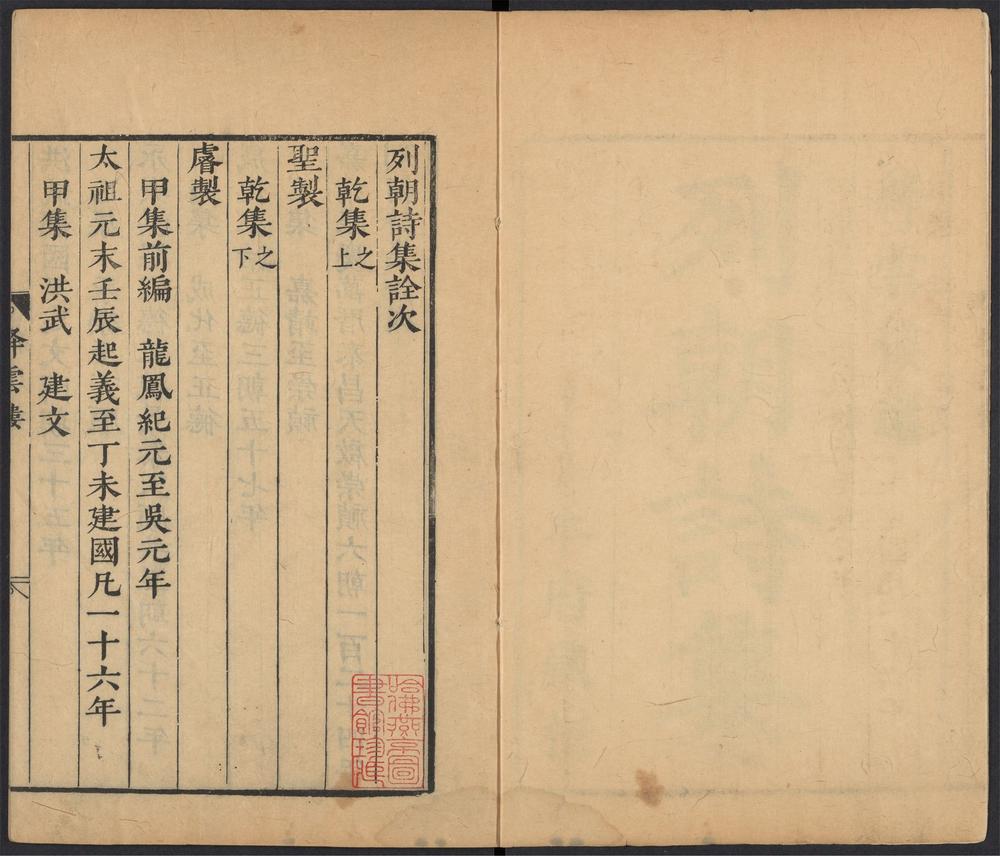 列朝詩集詮次
乾集之上
聖製
乾集之下
睿製
甲集前編 龍鳳紀元至吳元年
太祖元末壬辰起義至丁未建國凡一十六年
甲集 洪武 建文
絳雲樓
哈佛燕京圖書館珍藏